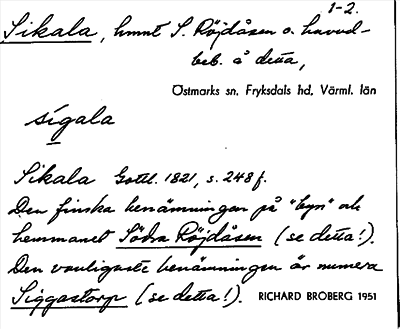 1-2.
Sikala, hmnt S. Röjdåsen o. huvud-
beb. å detta,
Östmarks sn, Fryksdals hd, Värml. län
sígala
Sikala Gottl. 1821, s. 248 f.
Den finska benämningen på "byn" och
hemmanet Södra Röjdåsen (se detta!).
Den vanligaste benämningen är numera
Siggastorp (se detta!). RICHARD BROBERG 1951